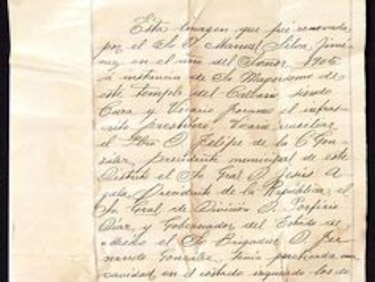 Esta Imagen que fué renovada
por el Sr D. Manuel Silva Jime
nez en el año del Señor 1905
á instancia de Sr Mayordomo de
este templo del Calvario, siendo
Cura y Vicario foraneo el infras
crito presbítero, Vicario auxiliar
el Pbro D. Felipe de la C. Gon
zalez, presidente municipal de este
Distrito el Sr Gral D. Jesús A
yala, Presidente de la República, el
Sr Gral de División D. Porfirio
Diaz y Gobernador del Estado de
México el Sr Brigadier D. Fer
nando Gonzalez, tenía practicada una
cavidad en el costado izquierdo los de